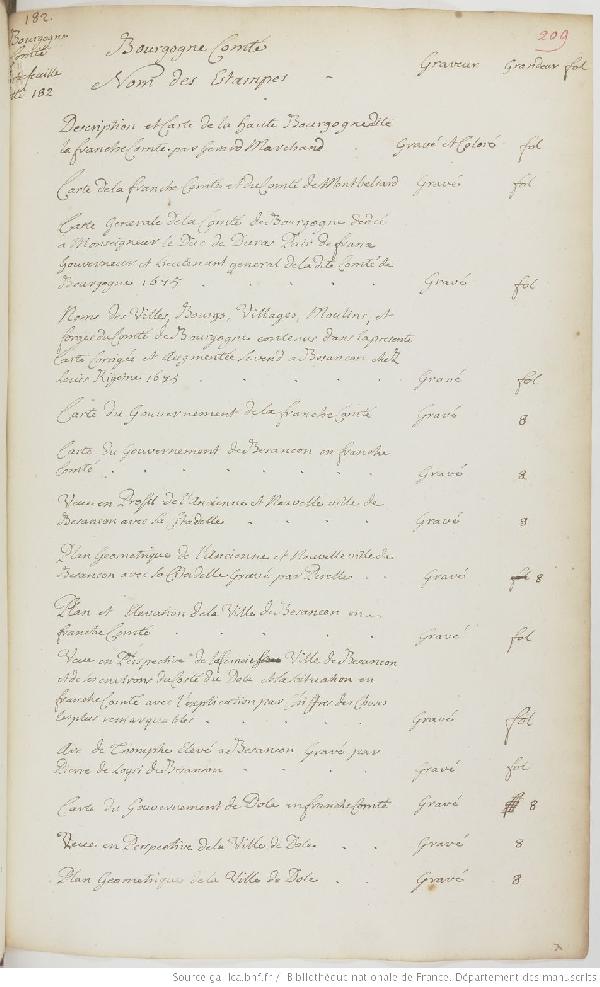 182.
209
Bourgogne
Comté
feuille
182
Bourgogne Comté
Nom des Estampes Graveur Grandeur fol
Description et Carte de la haute Bourgogne dite
la franche Comté par Gerard Marchand Gravé et Coloré fol
Carte de la franche Comté et du Comté de Montbeliard Gravé fol
Carte Generale de la Comté de Bourgogne dedié
a Monseigneur le Duc de Duras Pair de france
Gouverneur et Lieutenant general de la dite Comté de
Bourgogne 1675 Gravé fol
Noms des Villes, Bourgs, Villages, Moulins, et
forges du Comté de Bourgogne contenus dans la presente
Carte Corrigée et Augmentée se vend a Besancon chez
Louis Rigoine 1675 Gravé fol
Carte du Gouvernement de la franche Comté Gravé 8
Carte du Gouvernement de Besancon en franche
Comté Gravé 8
Veue en Profil de l'Ancienne et Nouvelle ville de
Besancon avec la Citadelle Gravé 8
Plan Geometrique de l'Ancienne et Nouvelle ville de
Besancon avec la Citadelle Gravé par Perelle Gravé 8
Plan et Elevation de la Ville de Besancon en
franche Comté Gravé fol
Veue en Perspective de la Ville de Besancon
et de ses environs du Costé du Dole et la situation en
franche Comté avec l'explication par Chiffres des Lieux
les plus remarquables Gravé fol
Arc de Triomphe élevé a Besancon Gravé par
Pierre de Loysi de Besancon Gravé fol
Carte du Gouvernement de Dole en franche Comté Gravé 8
Veue en Perspective de la Ville de Dole Gravé 8
Plan Geometrique de la Ville de Dole Gravé 8
Source gallica.bnf.fr / Bibliothèque nationale de France. Département des manuscrits